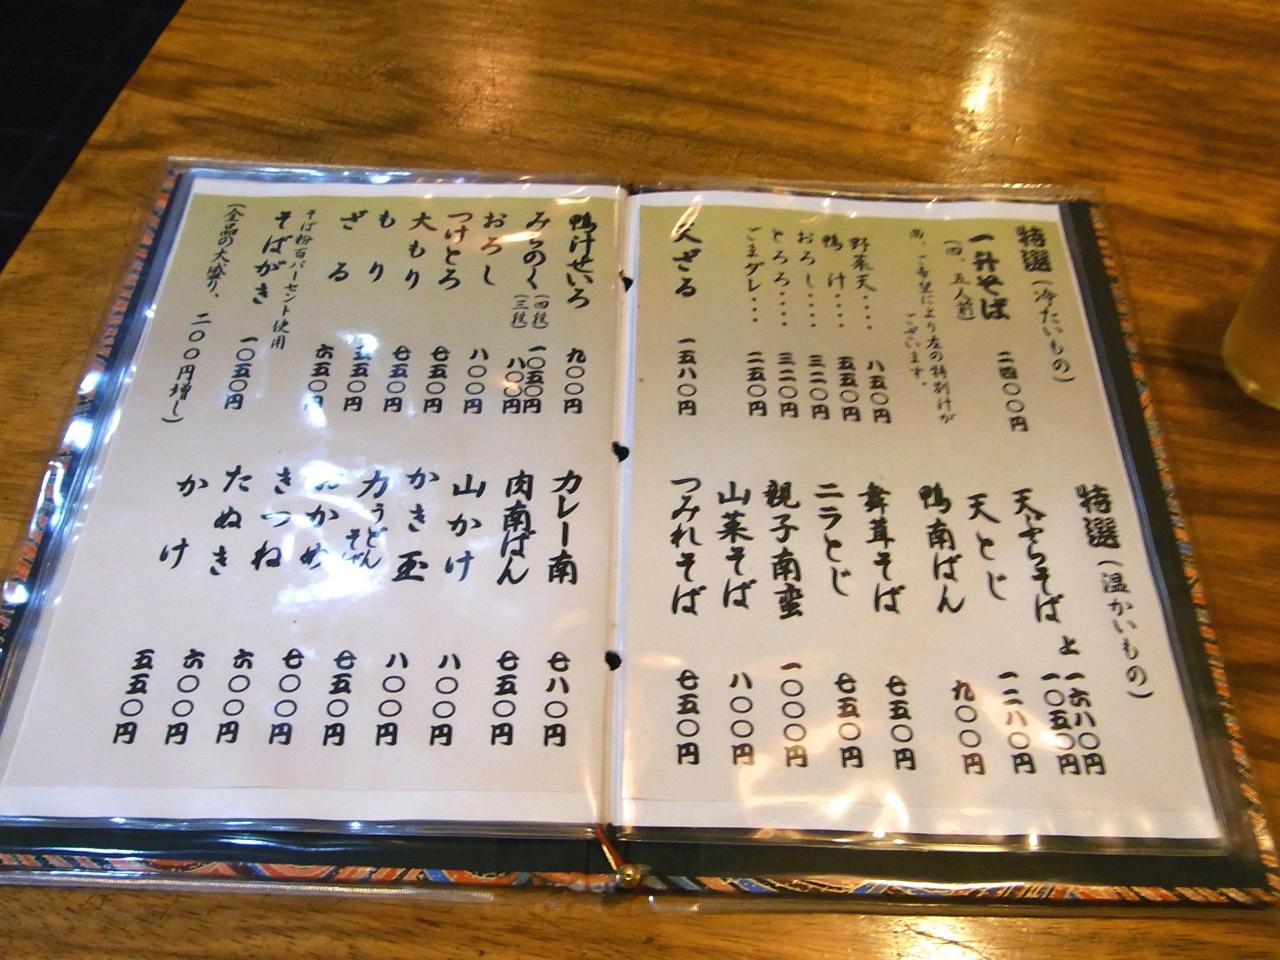 特選（冷たいもの）
一升そば 二四〇〇円
（四、五人前）
尚、ご希望により左の特別汁が
ございます。
野菜天‥‥ 八五〇円
鴨汁‥‥ 五五〇円
おろし‥‥ 三二〇円
とろろ‥‥ 三二〇円
ごまダレ‥‥ 二五〇円
天ざる 一五八〇円
特選（温かいもの）
天ぷらそば 上 一六八〇円
一〇五〇円
天とじ 一二八〇円
鴨南ばん 九〇〇円
舞茸そば 七五〇円
ニラとじ 七五〇円
親子南蛮 一〇〇〇円
山菜そば 八〇〇円
つみれそば 七五〇円
鴨汁せいろ 九〇〇円
みちのく（四段） 一〇五〇円
（三段） 八〇〇円
おろし 八〇〇円
つけとろ 七五〇円
大もり 七五〇円
もり 五五〇円
ざる 六五〇円
そば粉百パーセント使用
そばがき 一〇五〇円
（全品の大盛り、二〇〇円増し）
カレー南 七八〇円
肉南ばん 七五〇円
山かけ 八〇〇円
かき玉 八〇〇円
力うどん
そば 七五〇円
おかめ 七〇〇円
きつね 六〇〇円
たぬき 六〇〇円
かけ 五五〇円